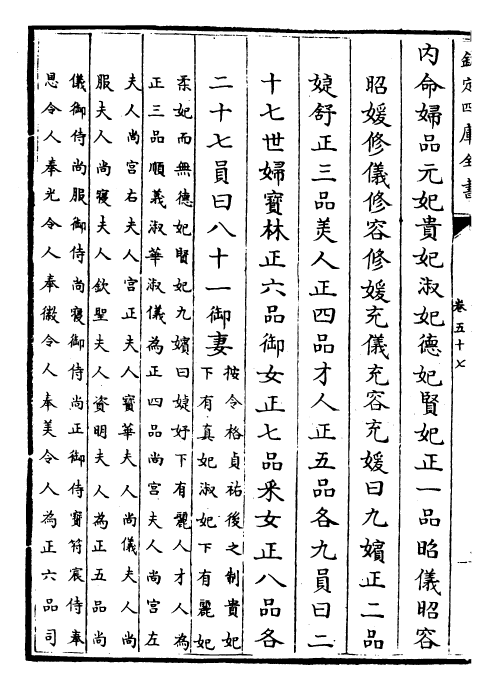 欽定四庫全書
卷五十七
一
內命婦品元妃貴妃淑妃德妃賢妃正一品昭儀昭容
昭媛修儀修容修媛充儀充容充媛曰九嬪正二品
婕舒正三品美人正四品才人正五品各九員曰二
十七世婦寶林正六品御女正七品采女正八品各
二十七員曰八十一御妻
按令格貞祐後之制貴妃
下有真妃淑妃下有麗妃
柔妃而無德妃賢妃九嬪曰婕妤下有麗人才人為
正三品順義淑華淑儀為正四品尚宮夫人尚宮左
夫人尚宮右夫人宮正夫人寶華夫人尚儀夫人尚
服夫人尚寢夫人欽聖夫人資明夫人為正五品尚
儀御侍尚服御侍尚寢御侍尚正御侍寶符宸侍奉
恩令人奉光令人奉徽令人奉美令人為正六品司